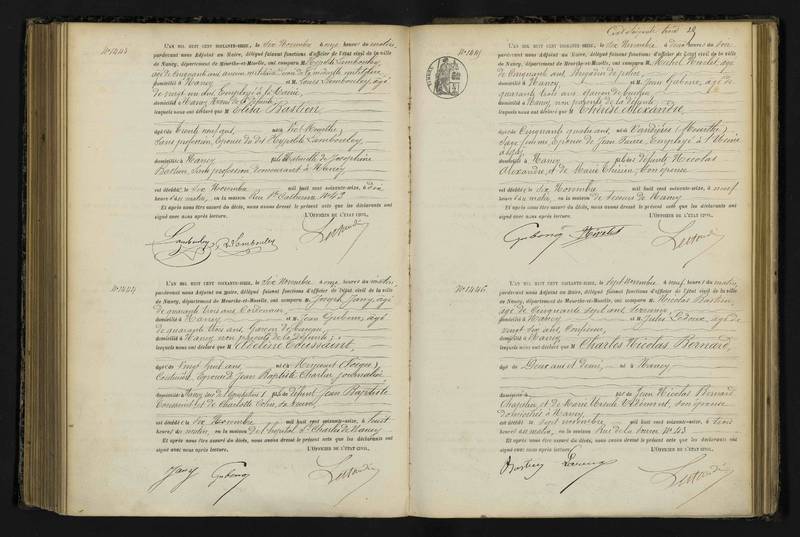 N° 1443
L'AN MIL HUIT CENT SOIXANTE-SEIZE, le six Novembre à onze heures du matin,
pardevant nous Adjoint au Maire, délégué faisant fonctions d'officier de l'état civil de la ville
de Nancy, département de Meurthe-et-Moselle, ont comparu M. Hypolite Lambouley,
âgé de Cinquante ans
domicilié à Nancy et M. Louis Lambouley, âgé
de vingt un ans, Employé à la
domicilié à Nancy
lesquels nous ont déclaré que M Elisa Bastien
âgé de trente neuf ans, né à
Sans profession, Epouse du dit Hypolite Lambouley
domicilié à Nancy fille naturelle de Joséphine
Bastien, sans profession demeurant à Nancy
est décédé le six Novembre mil huit cent soixante-seize, à dix
heures du matin, en la maison Rue Ste Catherine N° 43
Et après nous être assuré du décès, nous avons dressé le présent acte que les déclarants ont
signé avec nous après lecture. L'OFFICIER DE L'ÉTAT CIVIL,
Lambouley Lambouley
N° 1444
L'AN MIL HUIT CENT SOIXANTE-SEIZE, le six Novembre à onze heures du matin,
pardevant nous Adjoint au Maire, délégué faisant fonctions d'officier de l'état civil de la ville
de Nancy, département de Meurthe-et-Moselle, ont comparu M. Joseph Jany, âgé
de quarante trois ans, Cordonnier,
domicilié à Nancy et M. Jean Gubenq, âgé
de quarante trois ans, Garçon de bureau,
domicilié à Nancy, non parents de la défunte;
lesquels nous ont déclaré que M Adeline Toussaint
âgé de vingt huit ans, né à Mirecourt (Vosges)
Couturière, Epouse de Jean Baptiste Charlier, journalier
domicilié à Nancy, fille de défunt Jean Baptiste
Toussaint, et de Charlotte Colin, sa veuve,
est décédé le six Novembre mil huit cent soixante-seize, à huit
heures du matin, en la maison de l'hôpital St Charles de Nancy
Et après nous être assuré du décès, nous avons dressé le présent acte que les déclarants ont
signé avec nous après lecture. L'OFFICIER DE L'ÉTAT CIVIL,
Jany Gubenq
N° 1445
L'AN MIL HUIT CENT SOIXANTE-SEIZE, le six Novembre à deux heures du soir
pardevant nous Adjoint au Maire, délégué faisant fonctions d'officier de l'état civil de la ville
de Nancy, département de Meurthe-et-Moselle, ont comparu M. Michel Nicolet, âgé
de Cinquante ans, Brigadier de police,
domicilié à Nancy et M. Jean Gubenq, âgé de
quarante trois ans, Garçon de bureau
domicilié à Nancy, non parents de la défunte
lesquels nous ont déclaré que M Thérèse Alexandre
âgé de Cinquante quatre ans, né à Vandières (Meurthe)
Sage femme, Epouse de Jean Employé à l'Usine
à gaz
domicilié à Nancy fille des défunts Nicolas
Alexandre, et de Marie Thérèse
est décédé le six Novembre mil huit cent soixante-seize, à neuf
heures du matin, en la maison de Secours de Nancy
Et après nous être assuré du décès, nous avons dressé le présent acte que les déclarants ont
signé avec nous après lecture. L'OFFICIER DE L'ÉTAT CIVIL,
Gubenq Nicolet
N° 1446
L'AN MIL HUIT CENT SOIXANTE-SEIZE, le sept Novembre à neuf heures du matin,
pardevant nous Adjoint au Maire, délégué faisant fonctions d'officier de l'état civil de la ville
de Nancy, département de Meurthe-et-Moselle, ont comparu M. Nicolas Bastien,
âgé de Cinquante sept ans
domicilié à Nancy et M. Jules âgé de
vingt six ans,
domicilié à Nancy
lesquels nous ont déclaré que M Charles Nicolas Bernard
âgé de Deux ans et demi, né à Nancy
domicilié à fils de Jean Nicolas Bernard
Chapelier, et de Marie son épouse
domiciliés à Nancy
est décédé le sept novembre mil huit cent soixante-seize, à trois
heures du matin, en la maison Rue de la N° 43
Et après nous être assuré du décès, nous avons dressé le présent acte que les déclarants ont
signé avec nous après lecture. L'OFFICIER DE L'ÉTAT CIVIL,
Bastien